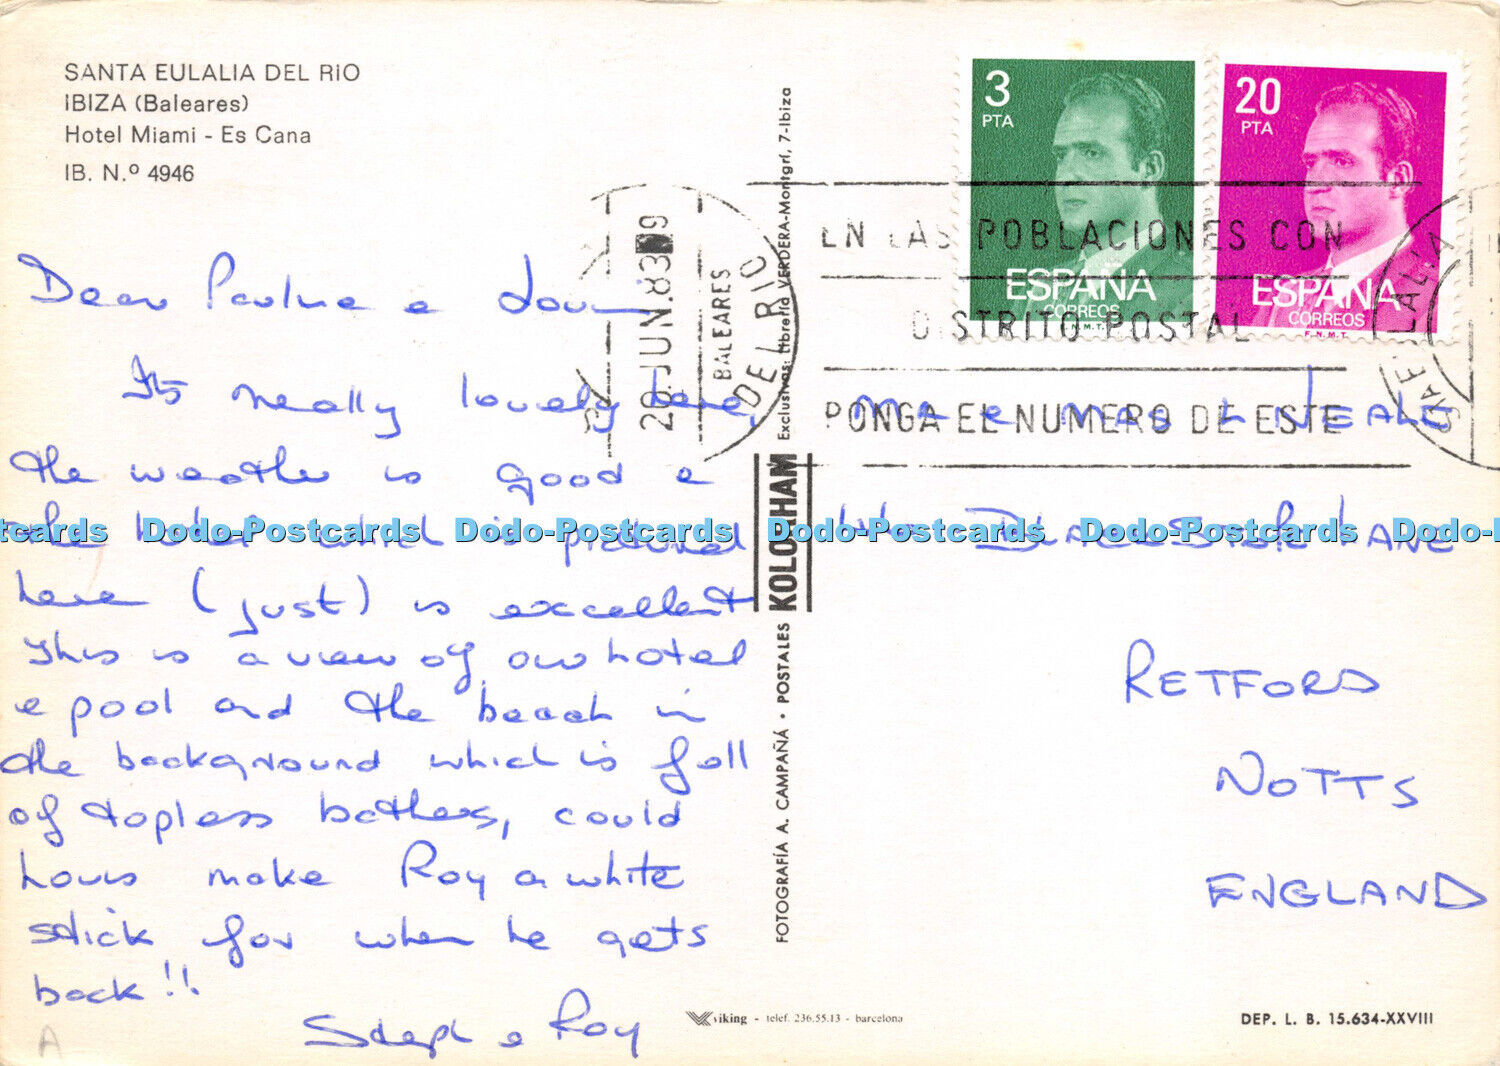 SANTA EULALIA DEL RIO
IBIZA (Baleares)
Hotel Miami - Es Cana
IB. N.º 4946
Dear Pauline e Louis
Its really lovely here,
the weather is good e
the hotel which is pictured
here (just) is excellent
This is a view of our hotel
e pool and the beach in
the background which is full
of topless bathers, could
Louis make Roy a white
stick for when he gets
back!!
Steph e Roy
A
3
PTA
ESPAÑA
CORREOS
F.N.M.T.
20
PTA
ESPAÑA
CORREOS
F.N.M.T.
28 JUN. 83
BALEARES
STA EULALIA DEL RIO
EN LAS POBLACIONES CON
DISTRITO POSTAL
PONGA EL NUMERO DE ESTE
MR e MRS L NEALE
BLACKSTOPE LANE
RETFORD
NOTTS
ENGLAND
FOTOGRAFÍA A. CAMPAÑÁ · POSTALES KOLORHAM Exclusivas: Librería VERDERA-Montgrí, 7-Ibiza
viking - telef. 236.55.13 - barcelona
DEP. L. B. 15.634-XXVIII
Dodo-Postcards Dodo-Postcards Dodo-Postcards Dodo-Postcards